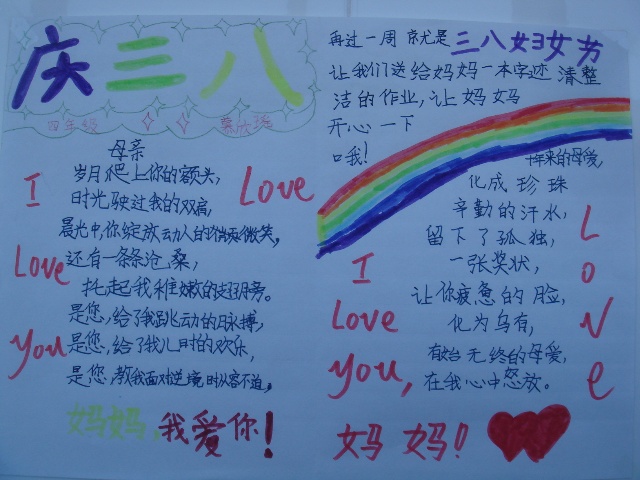 庆三八
四年级
母亲
岁月爬上你的额头,
时光驶过我的双肩,
晨光中,你绽放动人的微笑,
还有一条条沧桑,
托起我稚嫩的翅膀。
是您,给了我跳动的脉搏,
是您,给了我儿时的欢乐,
是您,教我面对逆境时从容不迫。
I
Love
Love
You
妈妈,我爱你!
再过一周就是三八妇女节
让我们送给妈妈一本字迹清整
洁的作业,让妈妈
开心一下
口我!
年来的母爱,
化成珍珠
辛勤的汗水,
留下了孤独,
一张奖状,
让你疲惫的脸,
化为乌有,
有始无终的母爱,
在我心中怒放。
I
Love
You,
LoVe
妈妈!